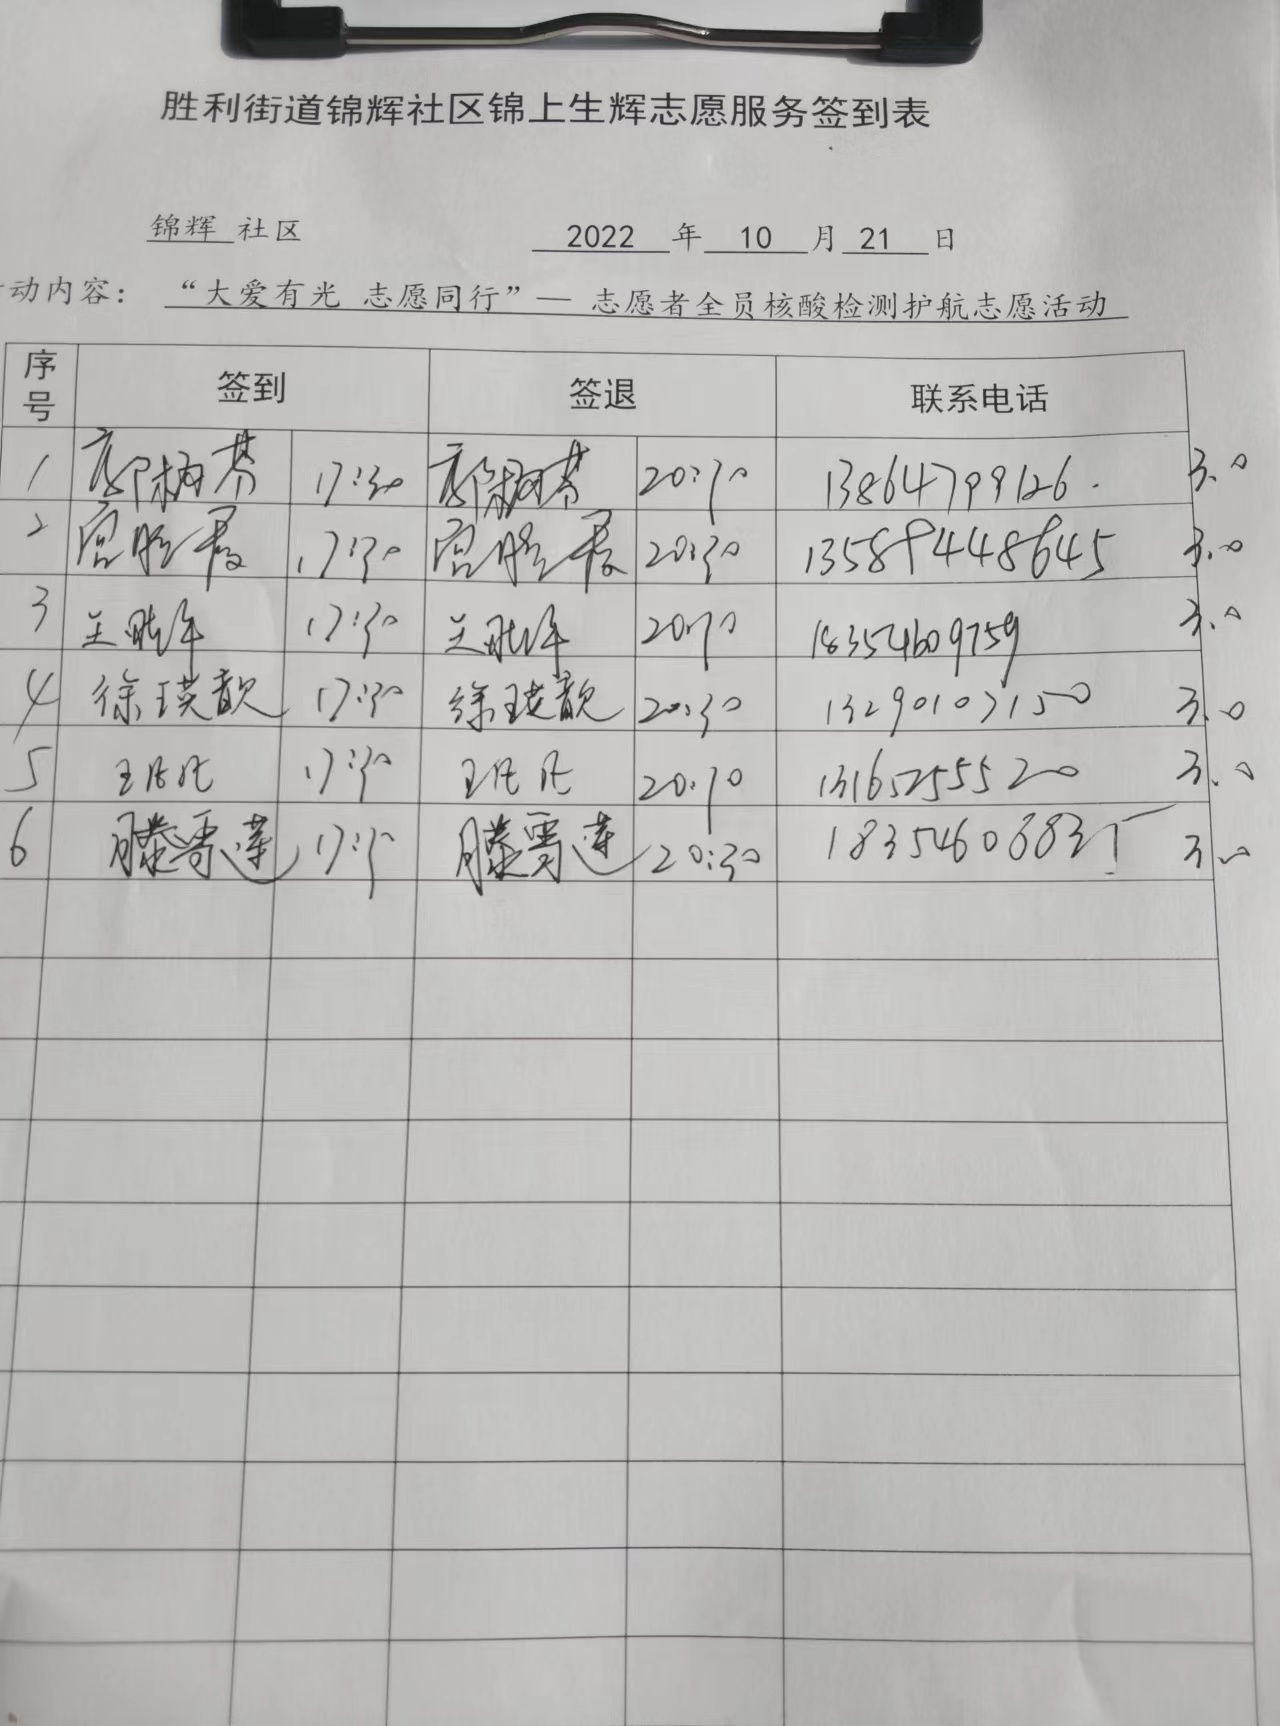 胜利街道锦辉社区锦上生辉志愿服务签到表
锦辉 社区 2022 年 10 月 21 日
动内容： “大爱有光 志愿同行”— 志愿者全员核酸检测护航志愿活动
序号 签到 签退 联系电话
1 17:30 20:30 13864799126. 3.0
2 17:30 20:30 13589448645 3.0
3 17:30 20:30 18354609759 3.0
4 徐瑛歆 17:30 徐瑛歆 20:30 13290103150 3.0
5 17:30 20:30 13165255520 3.0
6 滕雪莲 17:30 滕雪莲 20:30 3.0